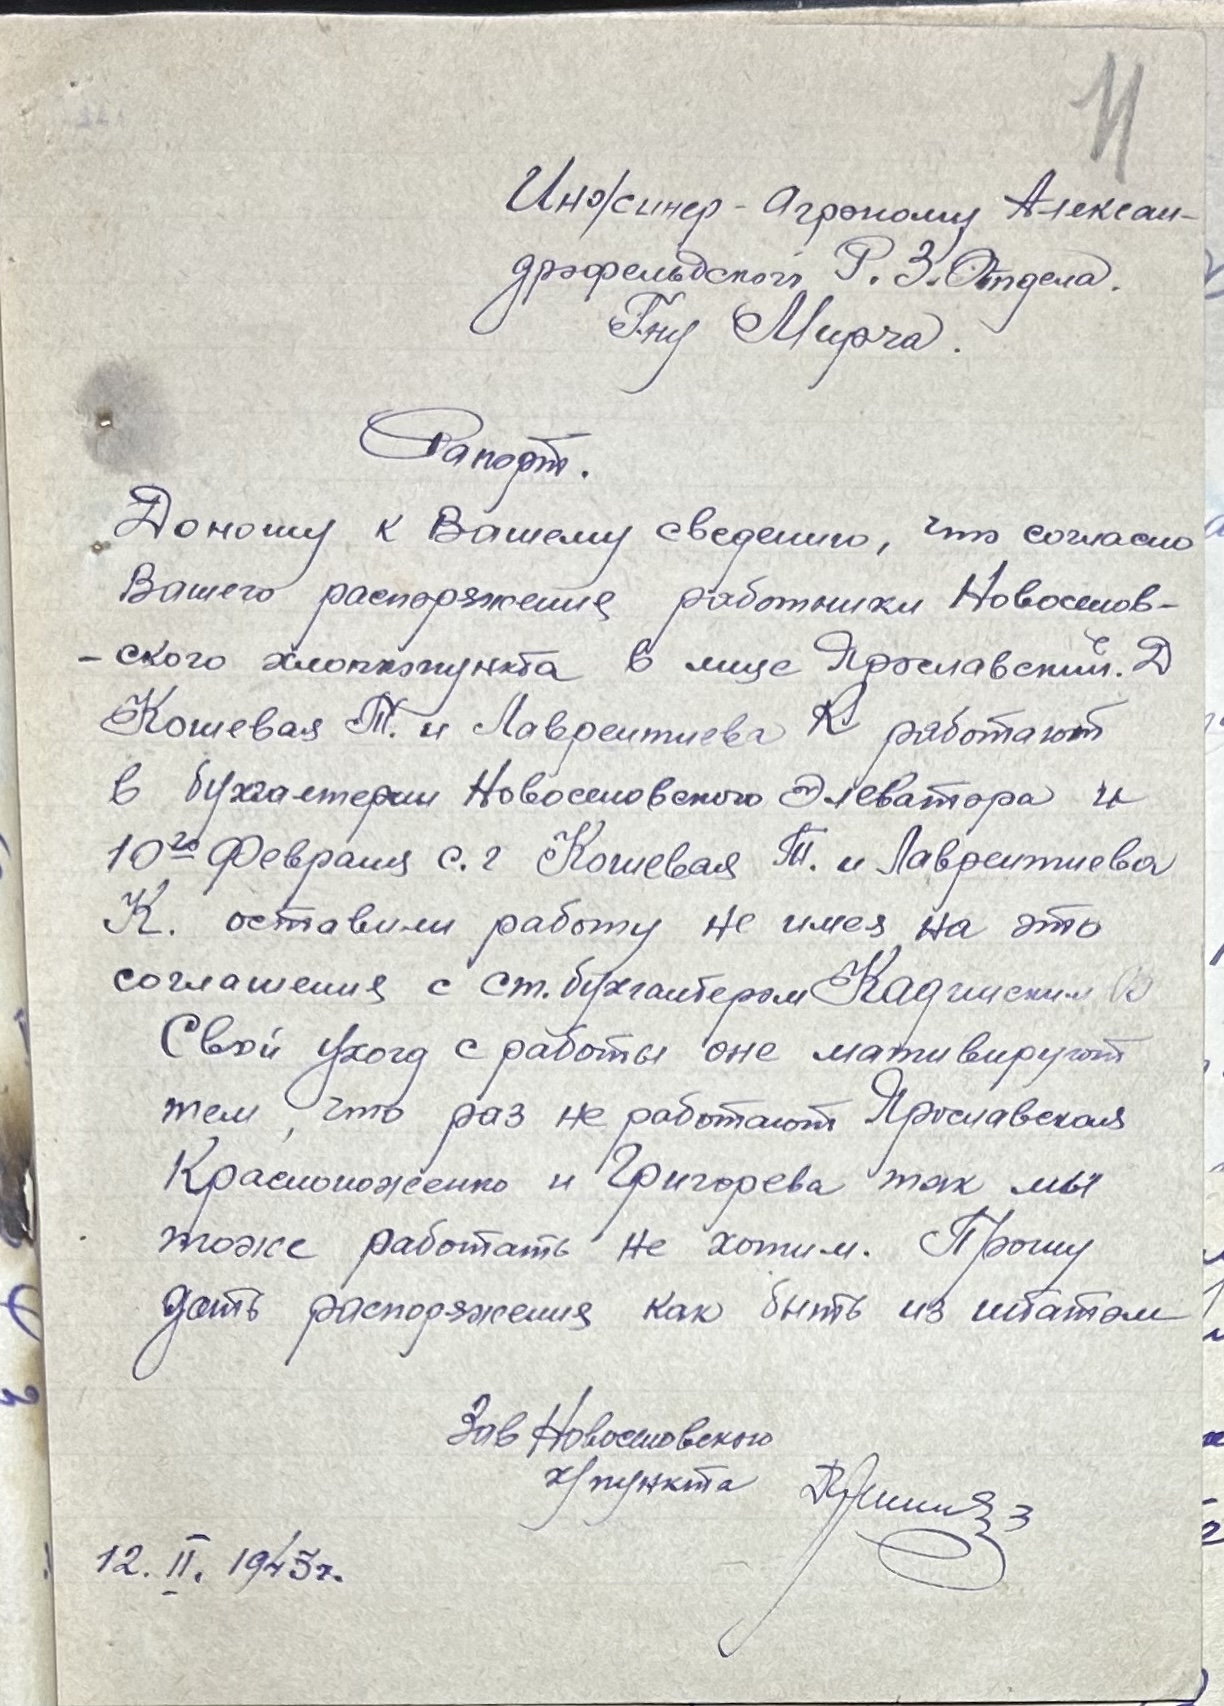 11
Инжинер-Агроному Алексан-
дрофельдского Р. З. Отдела.
Гну Мирча.
Рапорт.
Доношу к Вашему сведению, что согласно
Вашего распоряжения работники Новоселов-
-ского хлопкопункта в лице Ярославский. Д
Кошевая Т. и Лаврентиева К работают
в бухгалтерии Новоселовского Элеватора и
10го Февраля с. г Кошевая Т. и Лаврентиева
К. оставили работу не имея на это
соглашения с ст. бухгалтером Кадинским В
Свой уход с работы оне мативируют
тем, что раз не работают Ярославская
Красноноженко и Григорева так мы
тоже работать не хотим. Прошу
дать распоряжения как быть из штатом
Зав Новоселовского
х/пункта
12. II. 1943г.